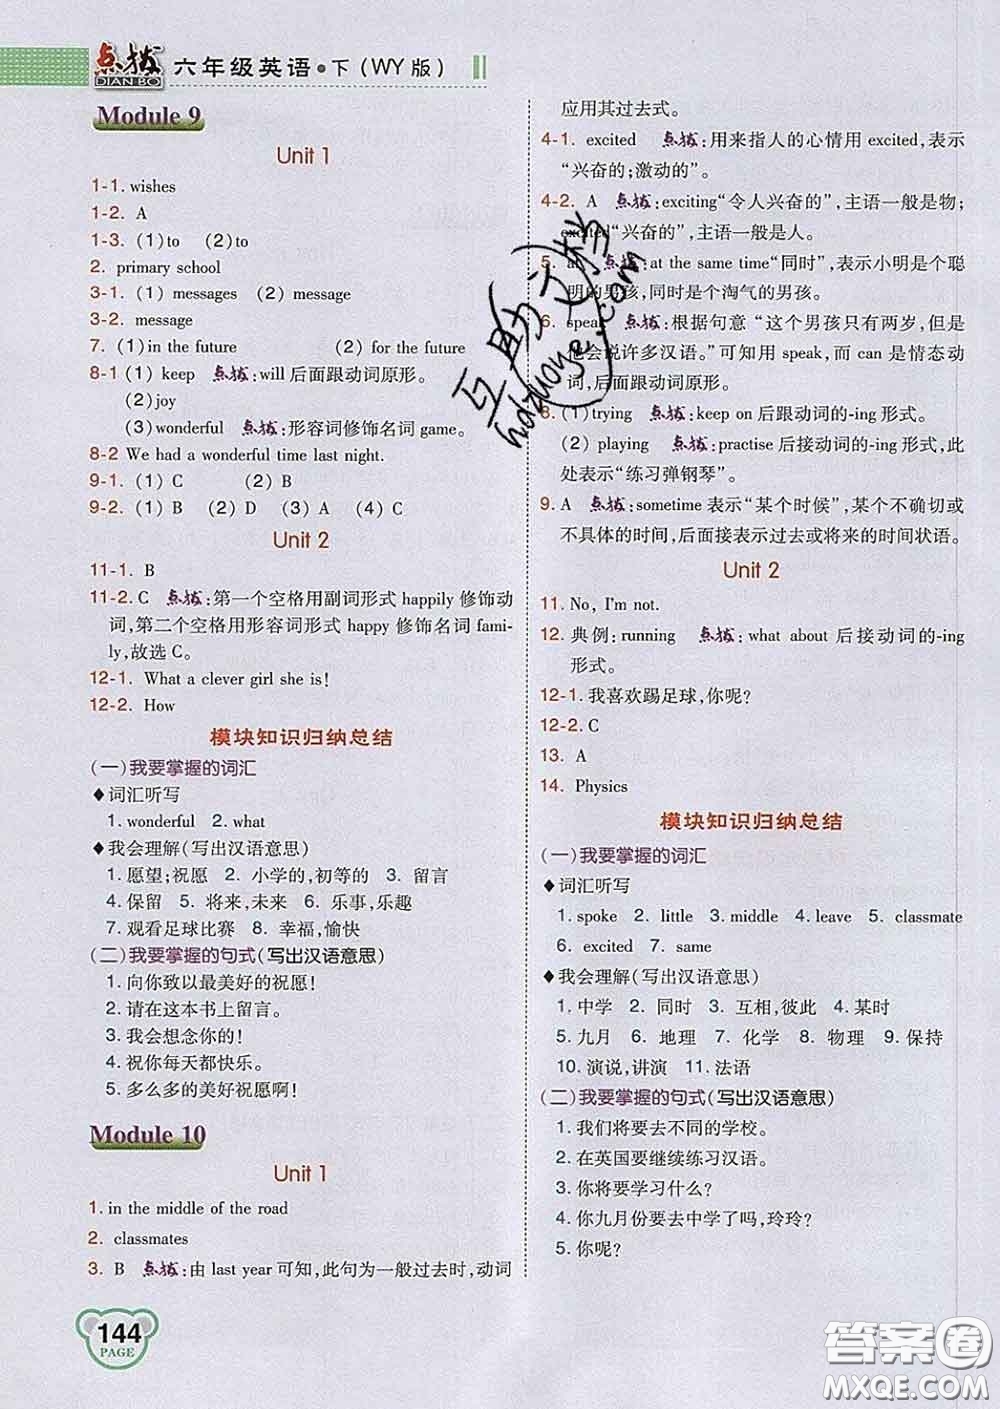 点拨 DIAN BO 六年级英语·下(WY版)
Module 9
Unit 1
1-1. wishes
1-2. A
1-3. (1)to (2)to
2. primary school
3-1. (1) messages (2) message
3-2. message
7. (1)in the future (2) for the future
8-1 (1) keep 点拨:will后面跟动词原形。
(2)joy
(3)wonderful 点拨:形容词修饰名词 game。
8-2 We had a wonderful time last night.
9-1. (1) C (2) B
9-2. (1) B (2) D (3) A (4) C
Unit 2
11-1. B
11-2. C 点拨:第一个空格用副词形式 happily 修饰动
词,第二个空格用形容词形式 happy 修饰名词 fami-
ly,故选 C。
12-1. What a clever girl she is!
12-2. How
模块知识归纳总结
(一)我要掌握的词汇
◆词汇听写
1. wonderful 2. what
◆我会理解(写出汉语意思)
1. 愿望;祝愿 2. 小学的,初等的 3. 留言
4. 保留 5. 将来,未来 6. 乐事,乐趣
7. 观看足球比赛 8. 幸福,愉快
(二)我要掌握的句式(写出汉语意思)
1. 向你致以最美好的祝愿!
2. 请在这本书上留言。
3. 我会想念你的!
4. 祝你每天都快乐。
5. 多么多的美好祝愿啊!
Module 10
Unit 1
1. in the middle of the road
2. classmates
3. B 点拨:由 last year 可知,此句为一般过去时,动词
应用其过去式。
4-1. excited 点拨:用来指人的心情用 excited,表示
“兴奋的;激动的”。
4-2. A 点拨:exciting“令人兴奋的”,主语一般是物;
excited“兴奋的”,主语一般是人。
5. at 点拨:at the same time“同时”,表示小明是个聪
明的男孩,同时是个淘气的男孩。
6. speak 点拨:根据句意“这个男孩只有两岁,但是
他会说许多汉语。”可知用 speak,而 can 是情态动
词,后面跟动词原形。
8. (1)trying 点拨:keep on 后跟动词的-ing 形式。
(2) playing 点拨:practise 后接动词的-ing 形式,此
处表示“练习弹钢琴”。
9. A 点拨:sometime 表示“某个时候”,某个不确切或
不具体的时间,后面接表示过去或将来的时间状语。
Unit 2
11. No, I'm not.
12. 典例:running 点拨:what about 后接动词的-ing
形式。
12-1. 我喜欢踢足球,你呢?
12-2. C
13. A
14. Physics
模块知识归纳总结
(一)我要掌握的词汇
◆词汇听写
1. spoke 2. little 3. middle 4. leave 5. classmate
6. excited 7. same
◆我会理解(写出汉语意思)
1. 中学 2. 同时 3. 互相,彼此 4. 某时
5. 九月 6. 地理 7. 化学 8. 物理 9. 保持
10. 演说,讲演 11. 法语
(二)我要掌握的句式(写出汉语意思)
1. 我们将要去不同的学校。
2. 在英国要继续练习汉语。
3. 你将要学习什么?
4. 你九月份要去中学了吗,玲玲?
5. 你呢?
144
PAGE
互助文档
hdzuoye.com
答案圈
MXQE.COM